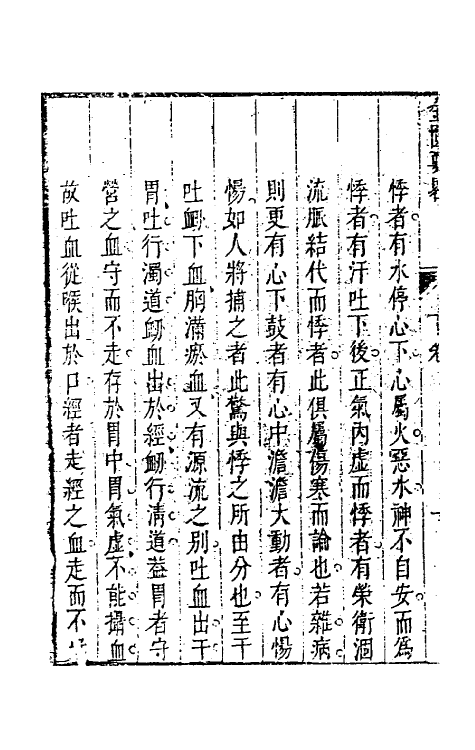 金匱要畧
下卷
悸者有水停心下心屬火惡水神不自安而為
悸者有汗吐下後正氣內虛而悸者有榮衛涸
流脈結代而悸者此俱屬傷寒而論也若雜病
則更有心下鼓者有心中澹澹大動者有心惕
惕如人將捕之者此驚與悸之所由分也至于
吐衂下血胸滿瘀血又有源流之別吐血出于
胃吐行濁道衂血出於經衂行清道葢胃者守
營之血守而不走存於胃中胃氣虛不能攝血
故吐血從喉出於口經者走經之血走而不